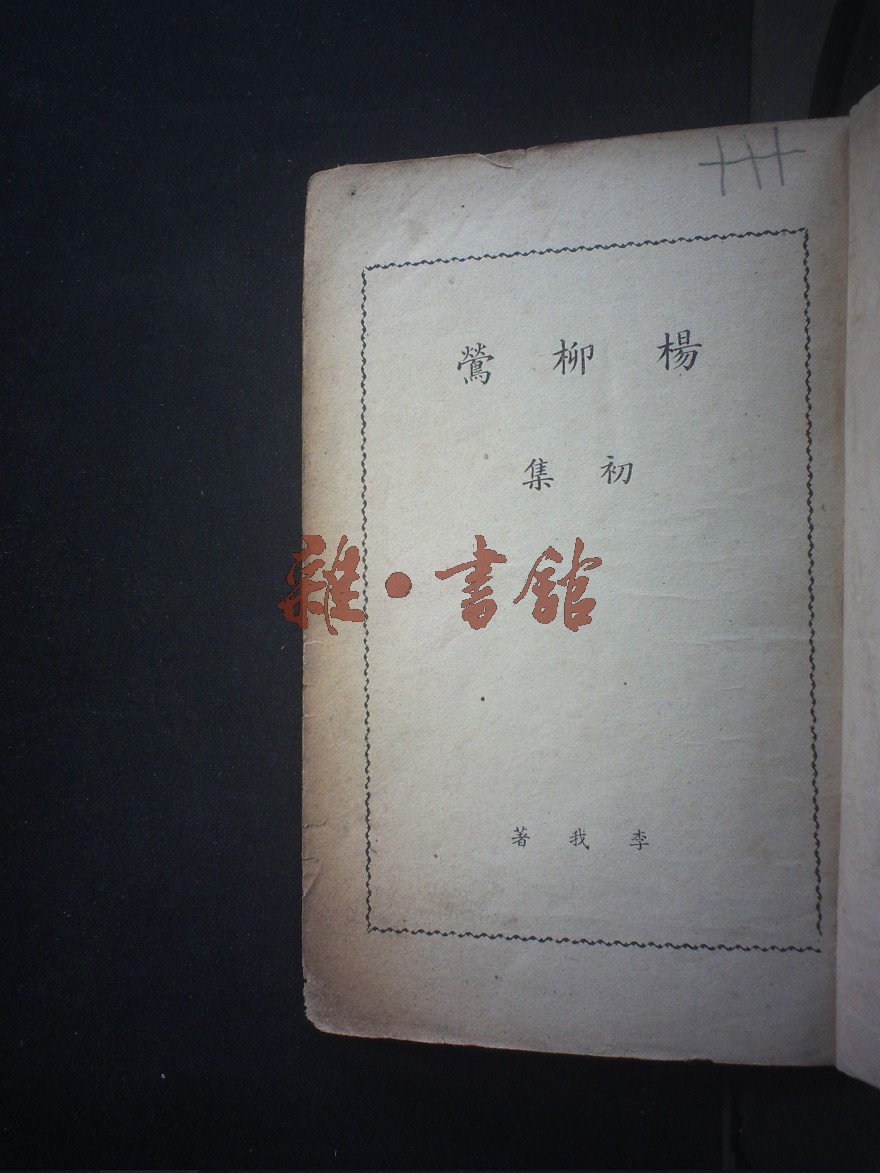 楊柳鶯
初集
雜·書館
李我著